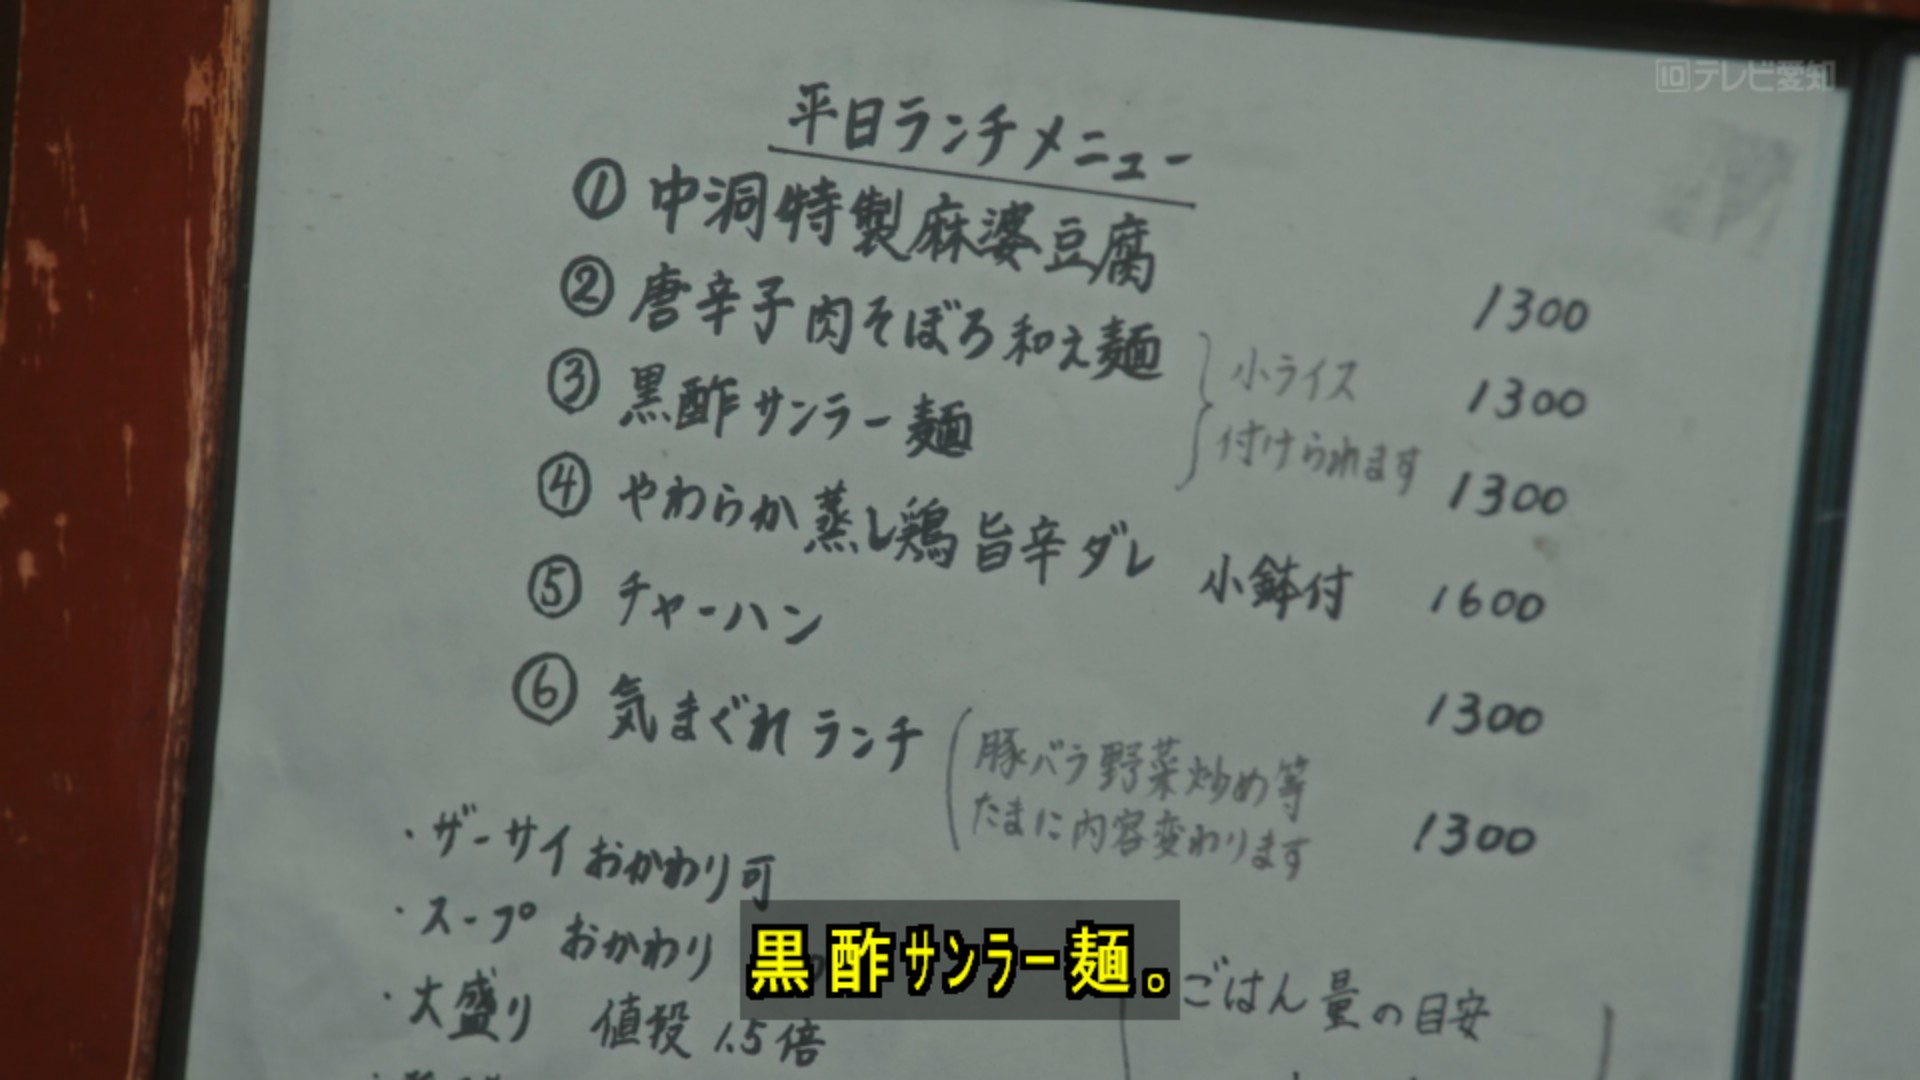 10テレビ愛知
平日ランチメニュー
① 中洞特製麻婆豆腐 1300
② 唐辛子肉そぼろ和え麺 1300
③ 黒酢サンラー麺 1300
小ライス
付けられます
④ やわらか蒸し鶏旨辛ダレ 小鉢付 1600
⑤ チャーハン 1300
⑥ 気まぐれランチ 1300
豚バラ野菜炒め等
たまに内容変わります
・ザーサイおかわり可
・スープ おかわり
・大盛り 値段 1.5倍
ごはん量の目安
黒酢サンラー麺。